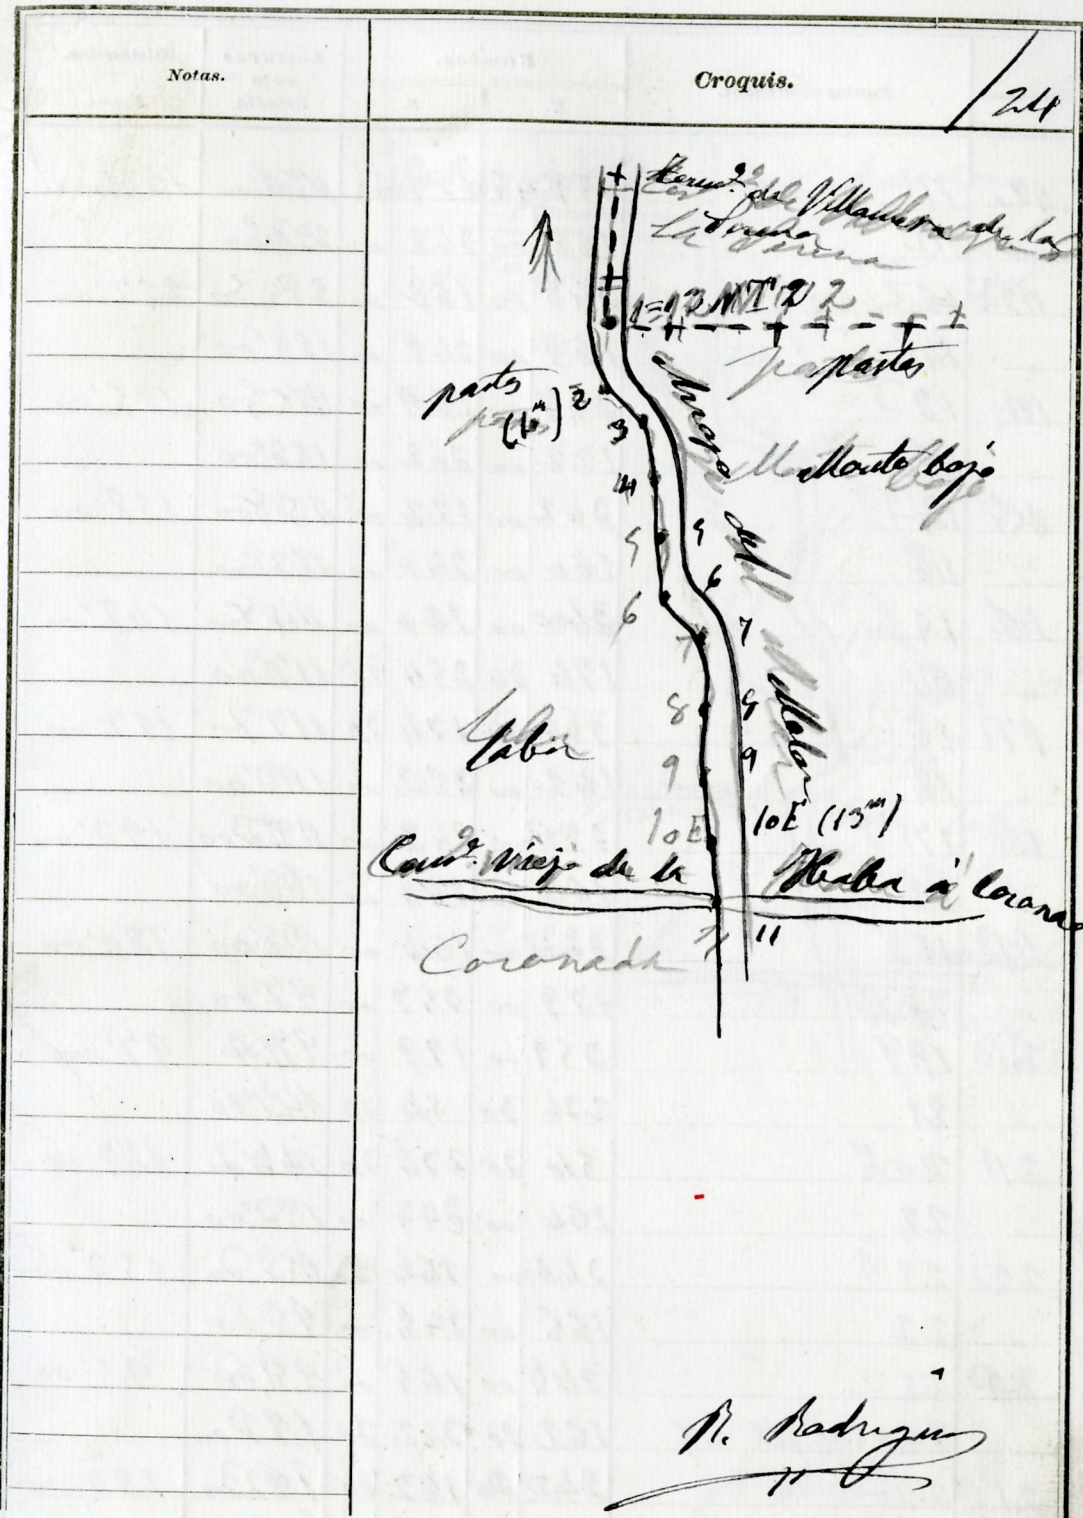 Notas.
Croquis.
24
Term.º de Villanueva de la
Serena
1=13 MT 2
pastos
pastos
(10m) 2
3
Arroyo del Molar
Monte bajo
4
5 5
6 6
7 7
8 8
9 9
Labor
10E 10E (13m)
Cam.º viejo de la Haba á Coronada
11 11
Coronada
R. Rodriguez